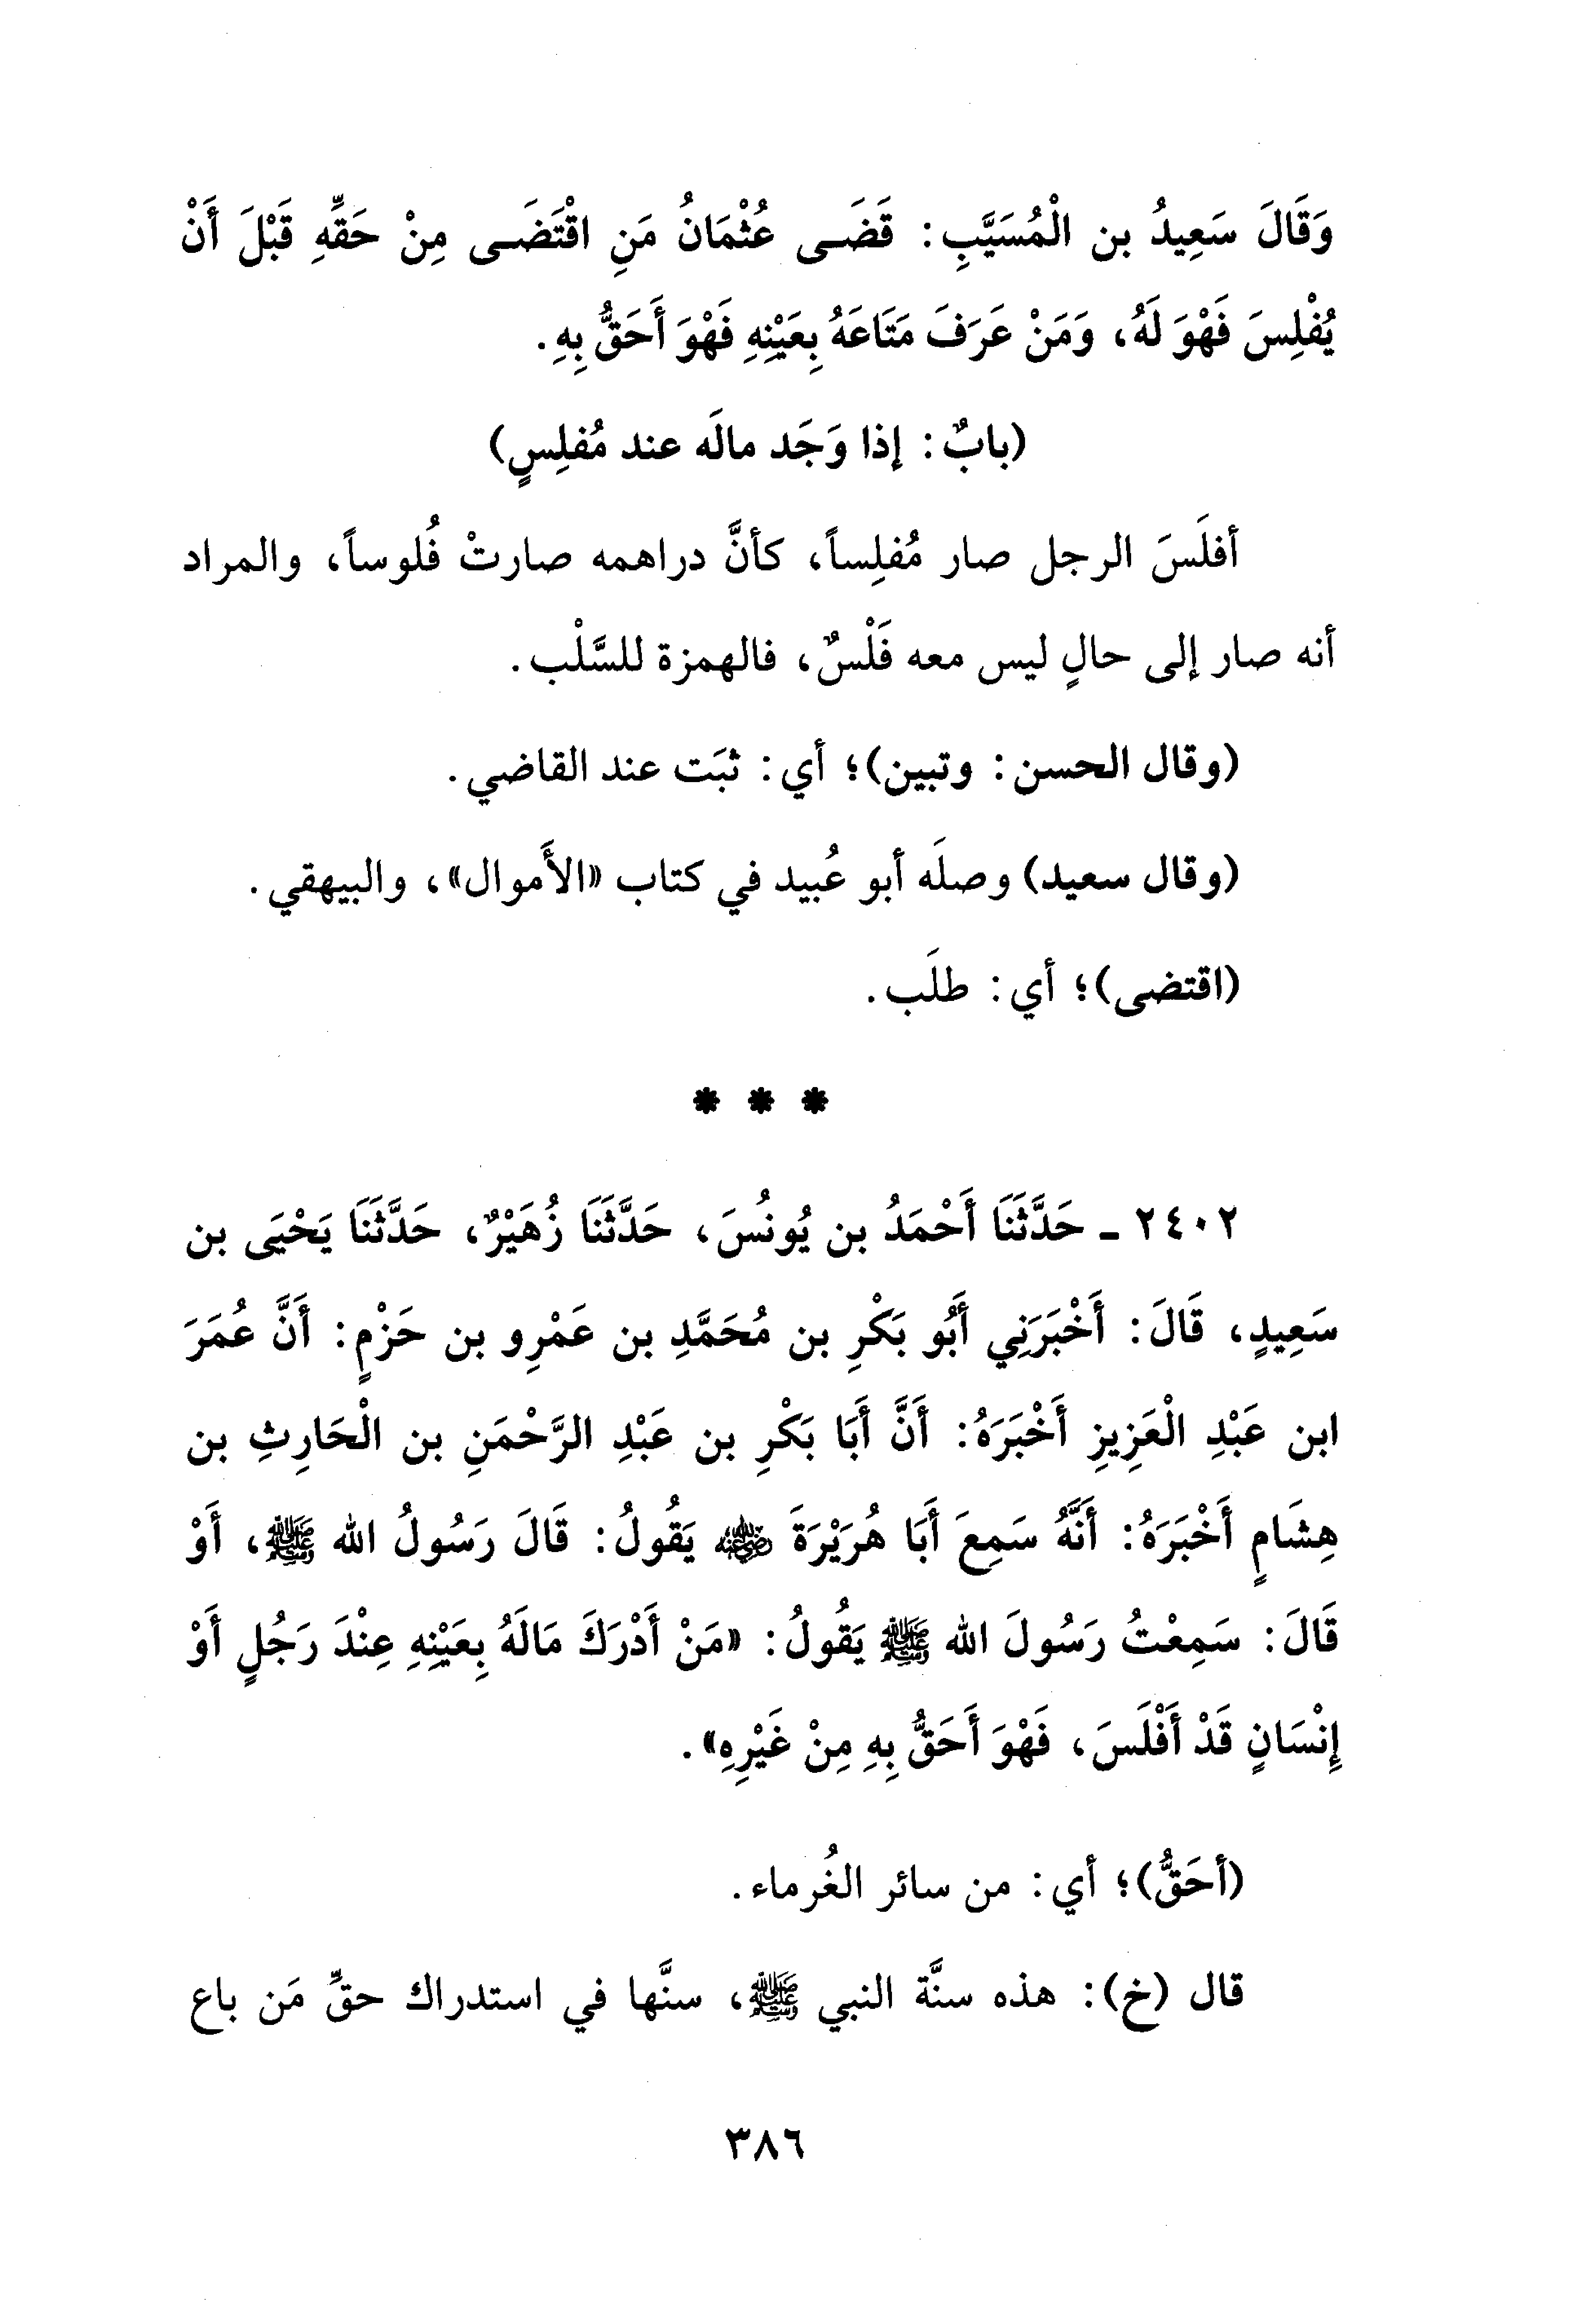 وَقَالَ سَعِيدُ بن الْمُسَيَّبِ: قَضَـى عُثْمَانُ مَنِ اقْتَضَـى مِنْ حَقِّهِ قَبْلَ أَنْ
يُفْلِسَ فَهْوَ لَهُ، وَمَنْ عَرَفَ مَتَاعَهُ بِعَيْنِهِ فَهْوَ أَحَقُّ بِهِ.
(بابٌ: إذا وَجَد مالَه عند مُفلِسٍ)
أفلَسَ الرجل صار مُفلِساً، كأنَّ دراهمه صارتْ فُلوساً، والمراد
أنه صار إلى حالٍ ليس معه فَلْسٌ، فالهمزة للسَّلْب.
(وقال الحسن: وتبين)؛ أي: ثبَت عند القاضي.
(وقال سعيد) وصلَه أبو عُبيد في كتاب «الأَموال»، والبيهقي.
(اقتضى)؛ أي: طلَب.
* * *
٢٤٠٢ ـ حَدَّثَنَا أَحْمَدُ بن يُونُسَ، حَدَّثَنَا زُهَيْرٌ، حَدَّثَنَا يَحْيَى بن
سَعِيدٍ، قَالَ: أَخْبَرَنِي أَبُو بَكْرِ بن مُحَمَّدِ بن عَمْرِو بن حَزْمٍ: أَنَّ عُمَرَ
ابن عَبْدِ الْعَزِيزِ أَخْبَرَهُ: أَنَّ أَبَا بَكْرِ بن عَبْدِ الرَّحْمَنِ بن الْحَارِثِ بن
هِشَامٍ أَخْبَرَهُ: أَنَّهُ سَمِعَ أَبَا هُرَيْرَةَ رضي الله عنه يَقُولُ: قَالَ رَسُولُ الله ﷺ، أَوْ
قَالَ: سَمِعْتُ رَسُولَ الله ﷺ يَقُولُ: «مَنْ أَدْرَكَ مَالَهُ بِعَيْنِهِ عِنْدَ رَجُلٍ أَوْ
إِنْسَانٍ قَدْ أَفْلَسَ، فَهْوَ أَحَقُّ بِهِ مِنْ غَيْرِهِ».
(أحَقُّ)؛ أي: من سائر الغُرماء.
قال (خ): هذه سنَّة النبي ﷺ، سنَّها في استدراك حقِّ مَن باع
٣٨٦